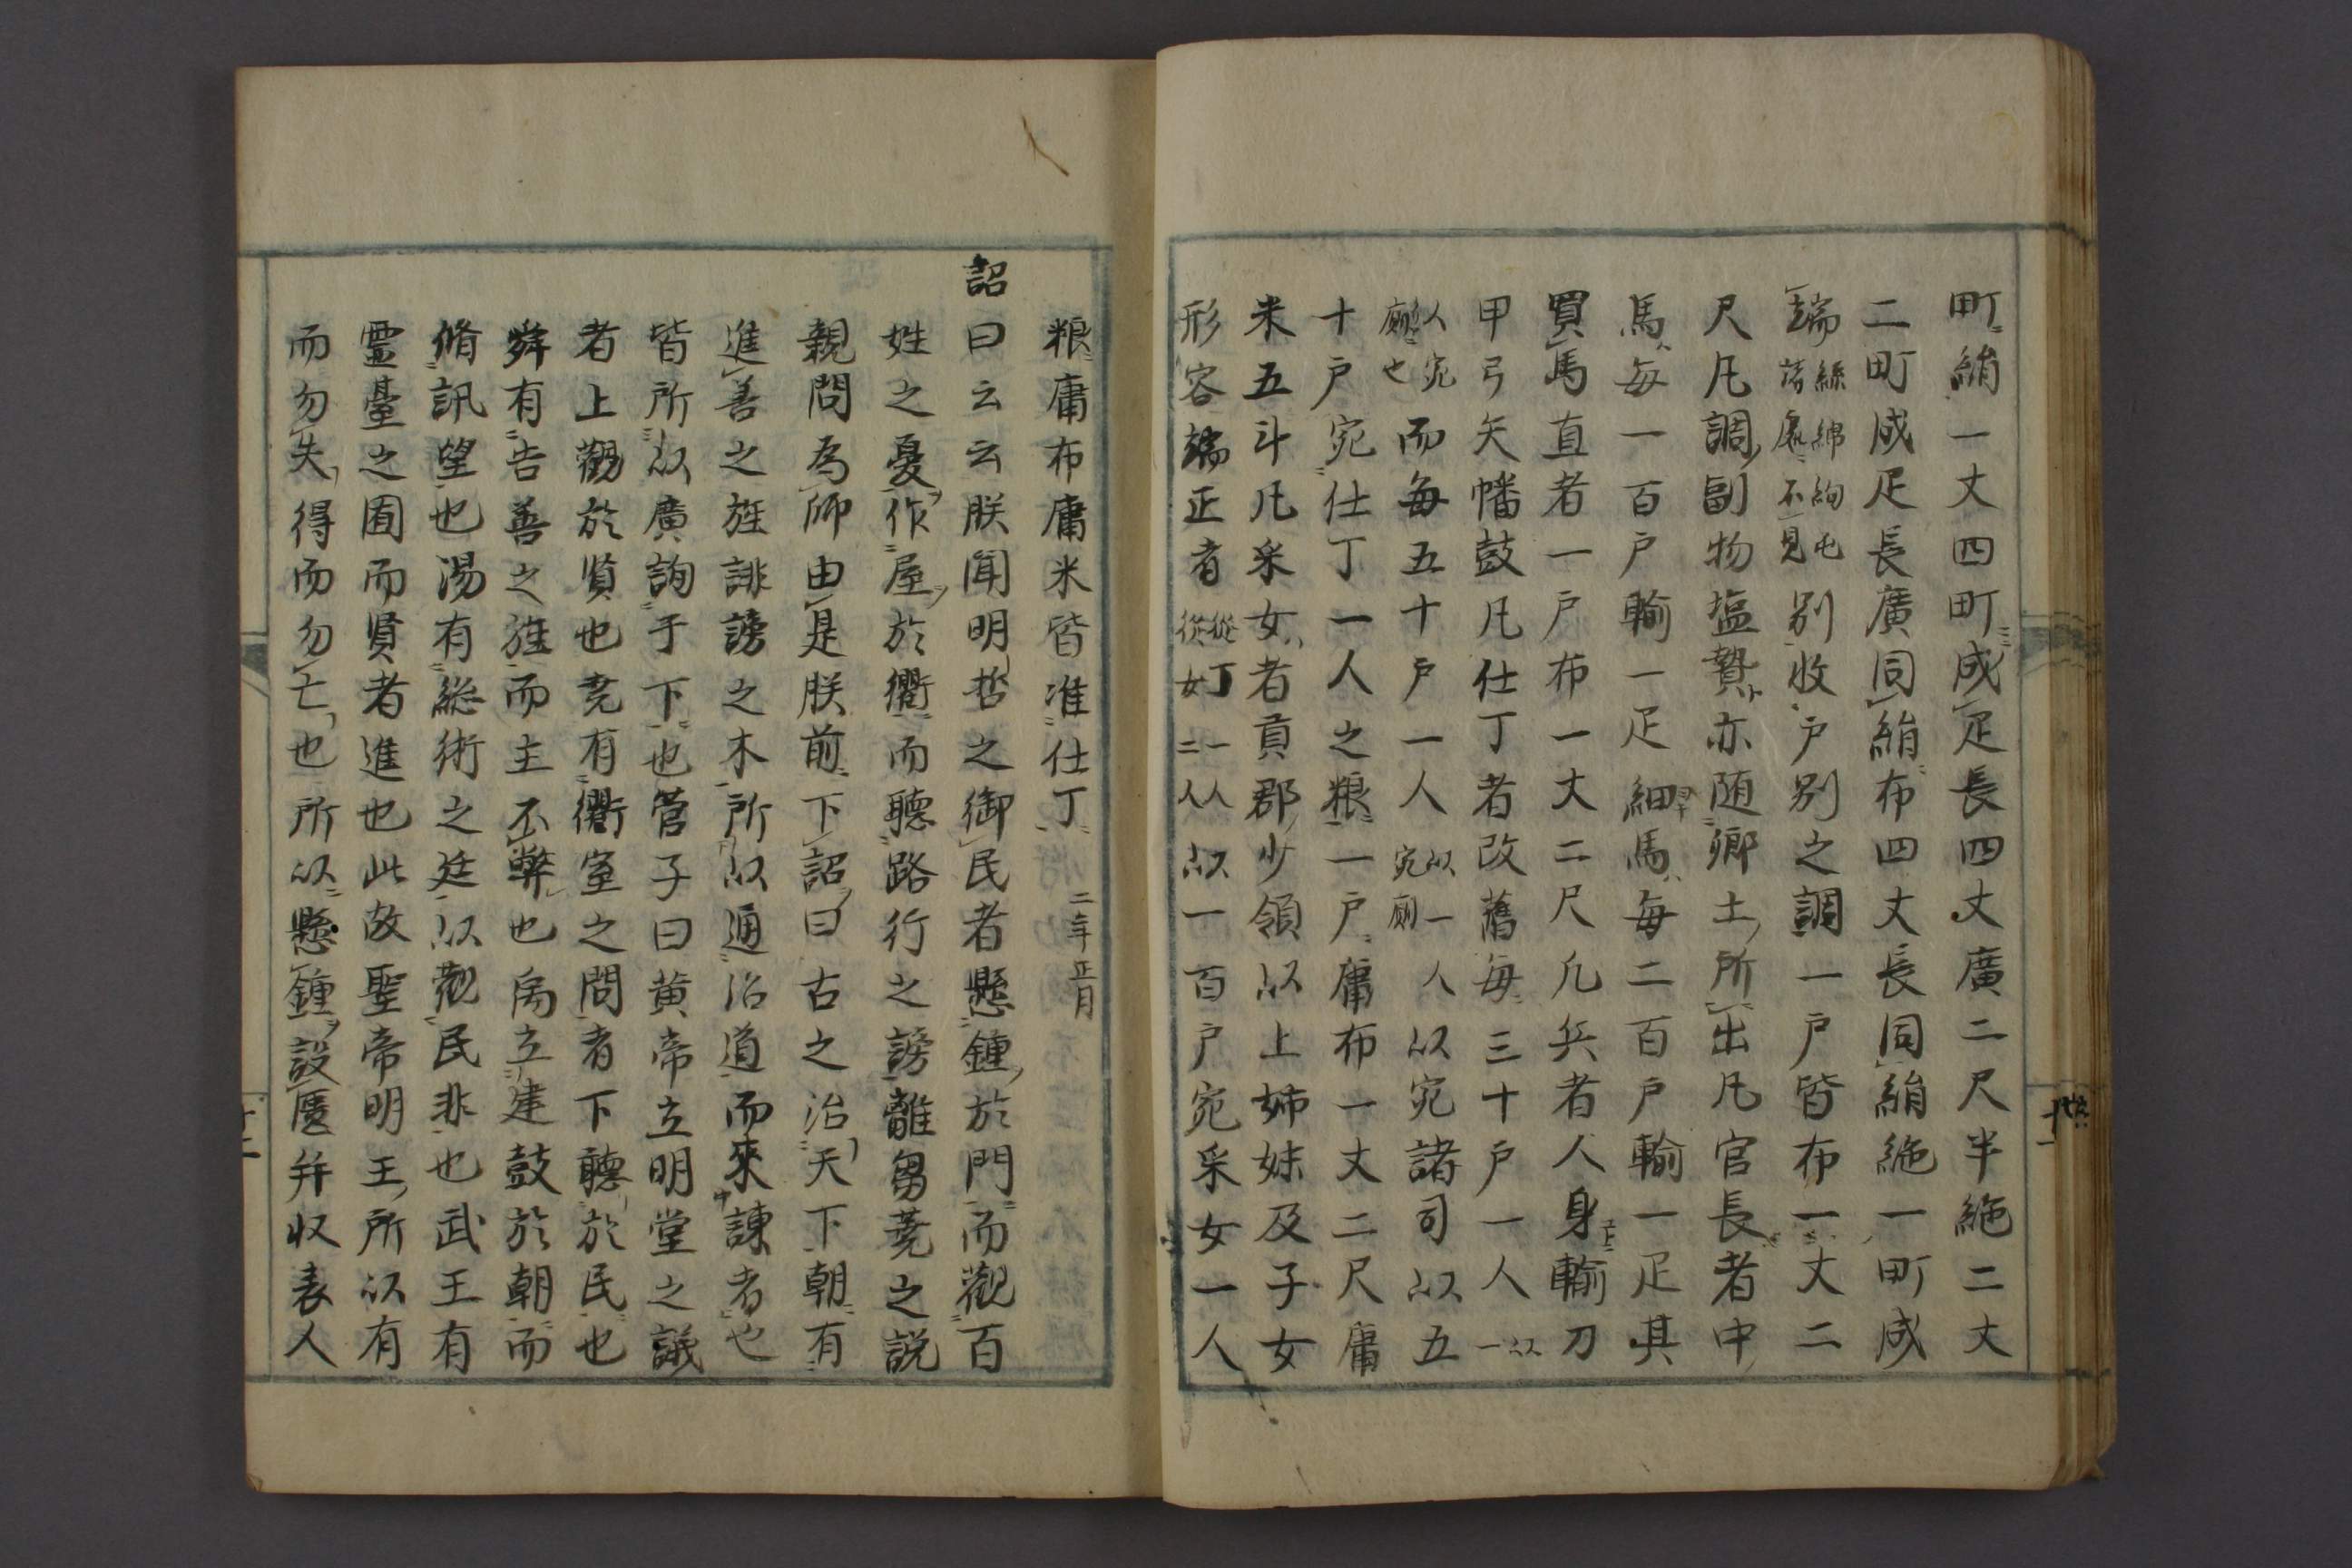 町絹一丈四町成疋長四丈廣二尺半絁二丈
二町成疋長廣同絹布四丈長同絹絁一町成
端絲綿絇屯諸處不見別收戸別之調一戸皆布一丈二
尺凡調副物塩贄亦随郷土所出凡官長者中
馬毎一百戸輸一疋細馬毎二百戸輸一疋其
買馬直者一戸布一丈二尺凡兵者人身輸刀
甲弓矢幡鼓凡仕丁者改舊毎三十戸一人以一
人宛廝也而毎五十戸一人以一人宛廝以宛諸司以五
十戸宛仕丁一人之粮一戸庸布一丈二尺庸
米五斗凡采女者貢郡少領以上姉妹及子女
形容端正者從丁一人從女二人以一百戸宛采女一人
十一
粮庸布庸米皆准仕丁二年正月
詔曰云云朕聞明哲之御民者懸鍾於門而観百
姓之憂作屋於衢而聴路行之謗雖芻蕘之説
親問為師由是朕前下詔曰古之治天下朝有
進善之旌誹謗之木所以通治道而來諫者也
皆所以廣詢于下也菅子曰黄帝立明堂之議
者上觀於賢也尭有衢室之問者下聴於民也
舜有告善之旌而主不弊也禹立建鼓於朝而
脩訊望也湯有総術之廷以観民非也武王有
靈臺之囿而賢者進也此故聖帝明王所以有
而勿失得而勿亡也所以懸鍾設匱并収表人
十二